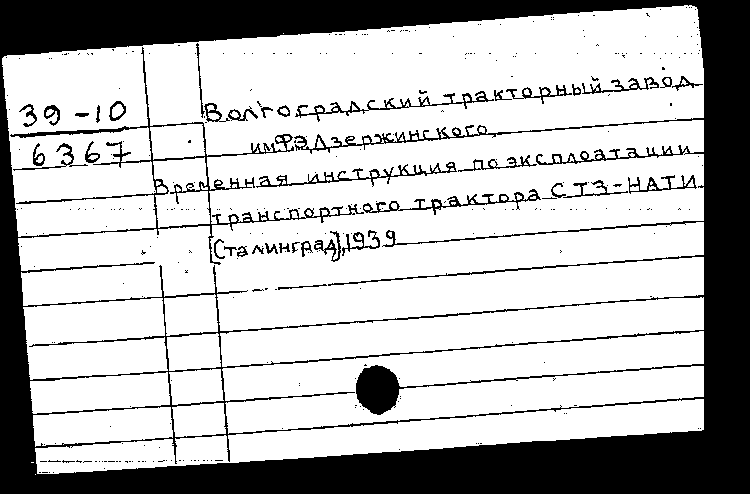 39-10
6367
Волгоградский тракторный завод
им.Ф.Э.Дзержинского.
Временная инструкция по эксплоатации
транспортного трактора СТЗ-НАТИ.
[Сталинград],1939